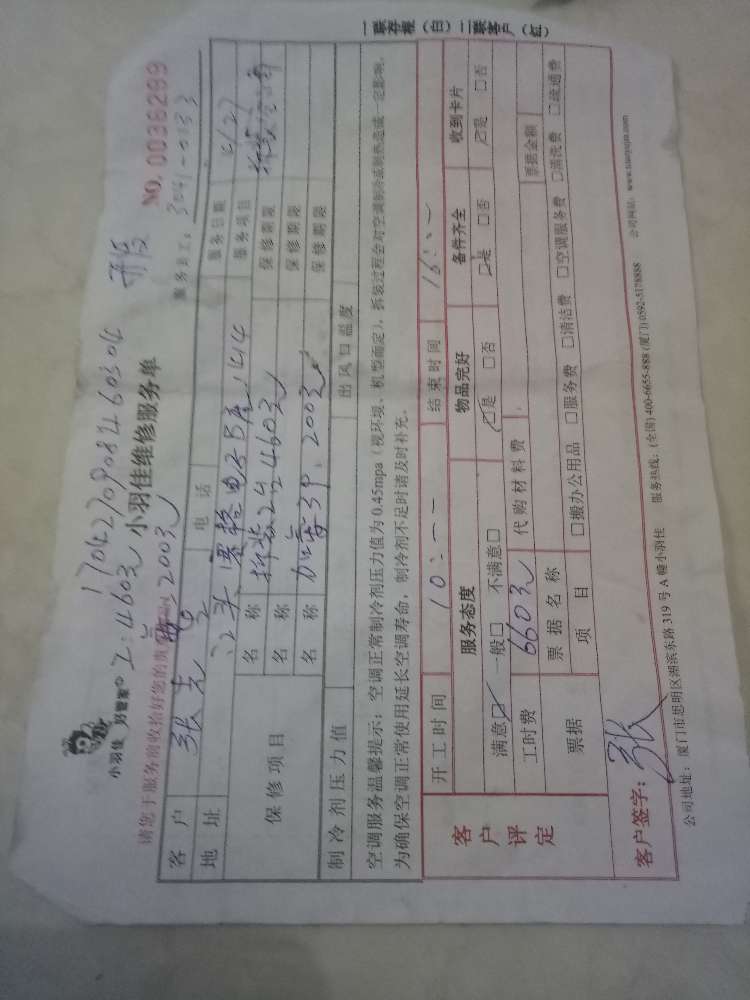 一联存根（白）二联客户（红）
1704270908460304 开发
小羽佳 好管家 工:460元 小羽佳维修服务单 NO.0036299
请您于服务前收拾好您的贵 200元 服务员工: 3041-0133
客户 张先 电话 服务日期 4/27
地址 B座1414 服务项目
保修项目 名称 拆装2台460元 保修期限
名称 保修期限
名称 200元 保修期限
制冷剂压力值 出风口温度
空调服务温馨提示：空调正常制冷剂压力值为0.45mpa（视环境、机型而定），拆装过程会对空调制冷或制热造成一定影响，
为确保空调正常使用延长空调寿命，制冷剂不足时请及时补充。
客户评定 开工时间 10:-- 结束时间 16:--
服务态度 物品完好 备件齐全 收到卡片
满意☑ 一般□ 不满意□ ☑是 □否 ☑是 □否 ☑是 □否
工时费 660元 代购材料费
票据 票据名称 票据金额
项目 □搬办公用品 □服务费 □清洁费 □空调服务费 □清洗费 □疏通费
客户签字: 张
公司地址：厦门市思明区湖滨东路319号A幢小羽佳 服务热线：(全国) 400-6655-888 (厦门) 0592-5178888 公司网站：www.xiaoyujia.com